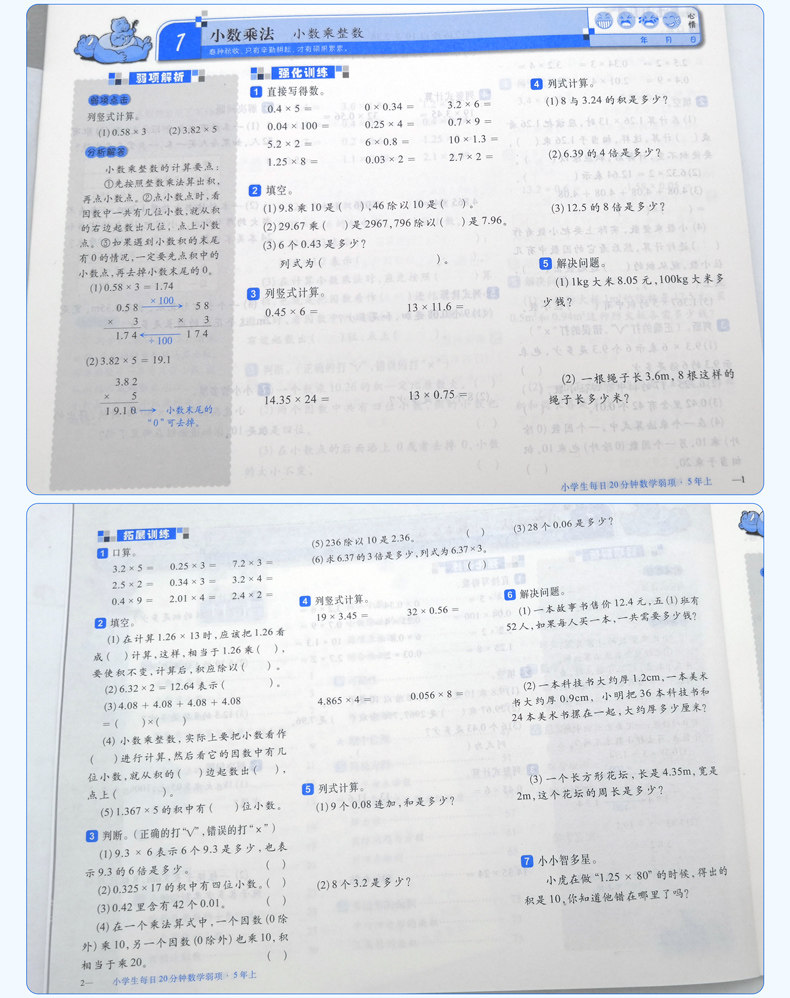 1 小数乘法 小数乘整数
各种批收,只有辛勤耕耘,才有硕果累累。
心情
年 月 日
弱项解析
弱项点击
列竖式计算。
(1)0.58×3 (2)3.82×5
分析解答
小数乘整数的计算要点:
①先按照整数乘法算出积,
再点小数点。②点小数点时,看
因数中一共有几位小数,就从积
的右边起数出几位,点上小数
点。③如果遇到小数积的末尾
有0的情况,一定要先点积中的
小数点,再去掉小数末尾的0。
(1)0.58×3=1.74
0.58 ×100 58
× 3 × 3
1.74 ÷100 174
(2)3.82×5=19.1
3.82
× 5
19.10 小数末尾的
“0”可去掉。
强化训练
1 直接写得数。
0.4×5= 0×0.34= 3.2×6=
0.04×100= 0.25×4= 0.7×9=
5.2×2= 6×0.8= 10×1.3=
1.25×8= 0.03×2= 2.7×2=
2 填空。
(1)9.8乘10是( ),46除以10是( )。
(2)29.67乘( )是2967,796除以( )是7.96。
(3)6个0.43是多少?
列式为( )。
3 列竖式计算。
0.45×6= 13×11.6=
14.35×24= 13×0.75=
4 列式计算。
(1)8与3.24的积是多少?
(2)6.39的4倍是多少?
(3)12.5的8倍是多少?
5 解决问题。
(1)1kg大米8.05元,100kg大米多
少钱?
(2) 一根绳子长3.6m,8根这样的
绳子长多少米?
小学生每日20分钟数学弱项·5年上 —1
拓展训练
1 口算。
3.2×5= 0.25×3= 7.2×3=
2.5×2= 0.34×3= 3.2×4=
0.4×9= 2.01×4= 2.4×2=
2 填空。
(1)在计算1.26×13时,应该把1.26看
成( )计算,这样,相当于1.26乘( ),
要使积不变,计算后,积应除以( )。
(2)6.32×2=12.64表示( )。
(3)4.08+4.08+4.08+4.08
=( )×( )
(4) 小数乘整数,实际上要把小数看作
( )进行计算,然后看它的因数中有几
位小数,就从积的( )边起数出( ),
点上( )。
(5)1.367×5的积中有( )位小数。
3 判断。(正确的打“√”,错误的打“×”)
(1)9.3 ×6表示6个9.3是多少,也表
示9.3的6倍是多少。 ( )
(2)0.325×17的积中有四位小数。( )
(3)0.42里含有42个0.01。 ( )
(4)在一个乘法算式中,一个因数(0除
外)乘10,另一个因数(0除外)也乘10,积
相当于乘20。 ( )
2— 小学生每日20分钟数学弱项·5年上
(5)236除以10是2.36。 ( )
(6)求6.37的3倍是多少,列式为6.37×3。
( )
4 列竖式计算。
19×3.45= 32×0.56=
4.865×4= 0.056×8=
5 列式计算。
(1)9个0.08连加,和是多少?
(2)8个3.2是多少?
(3)28个0.06是多少?
6 解决问题。
(1)一本故事书售价12.4元,五(1)班有
52人,如果每人买一本,一共需要多少钱?
(2)一本科技书大约厚1.2cm,一本美术
书大约厚0.9cm, 小明把36本科技书和
24本美术书摞在一起,大约厚多少厘米?
(3)一个长方形花坛,长是4.35m,宽是
2m,这个花坛的周长是多少?
7 小小智多星。
小虎在做“1.25×80”的时候,得出的
积是10,你知道他错在哪里了吗?